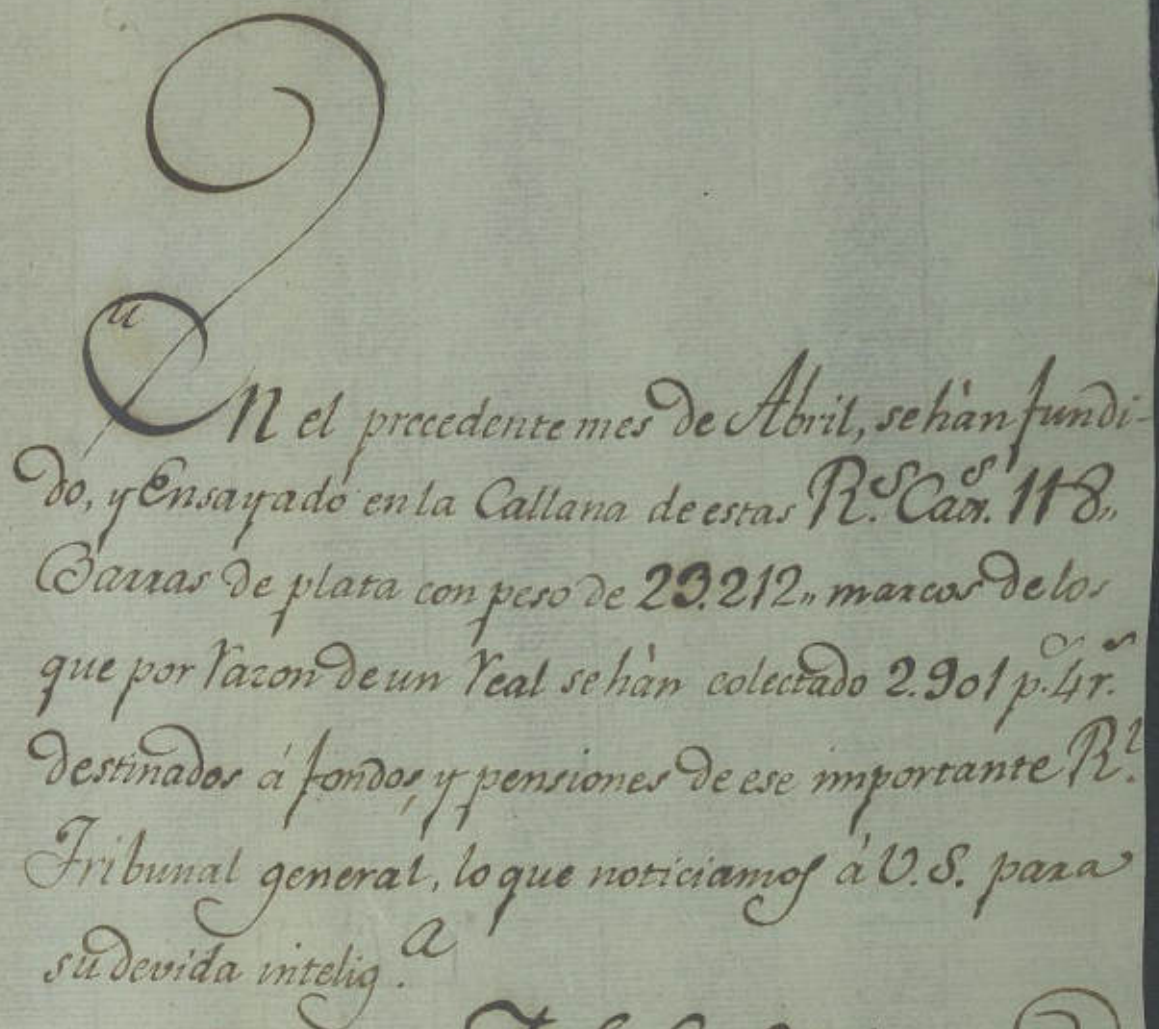 En el precedente mes de Abril, se hàn fundi-
do, y Ensayado en la Callana de estas R.ˢ Cax.ˢ 118,,
Barras de plata con peso de 23.212,, marcos de los
que por razon de un real se hàn colectado 2.901 p.ˢ 4 r.ˢ
destinados á fondos, y pensiones de ese importante R.ˡ
Tribunal general, lo que noticiamos á V.S. para
su devida intelig.ᵃ